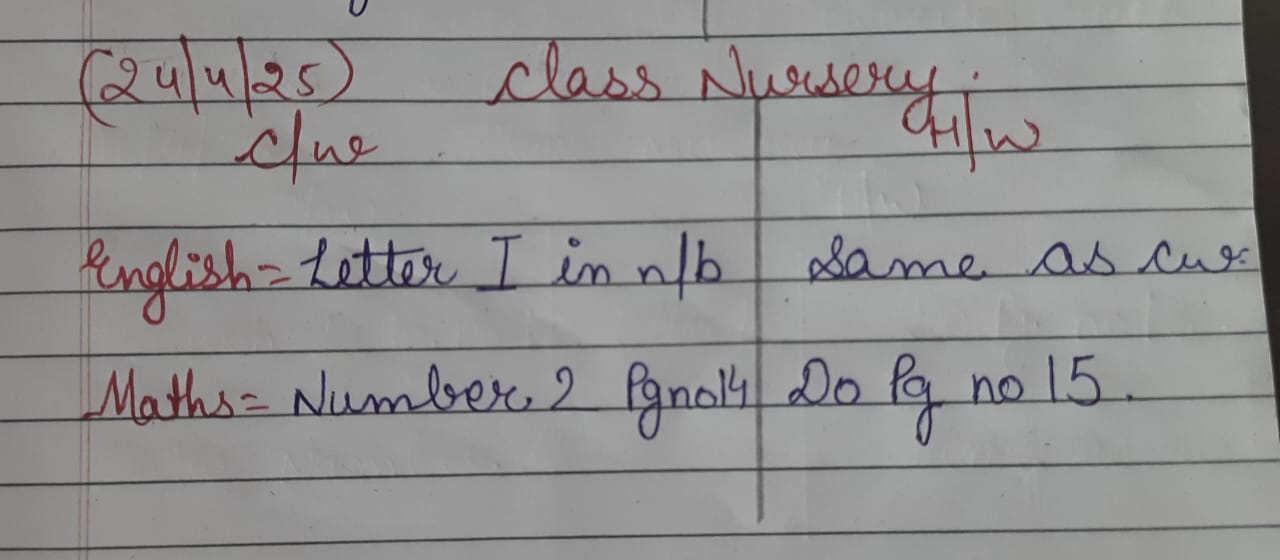 (24/4/25) Class Nursery.
C/w H/w
English = Letter I in n/b Same as cw.
Maths = Number 2 Pg no 14 Do Pg no 15.